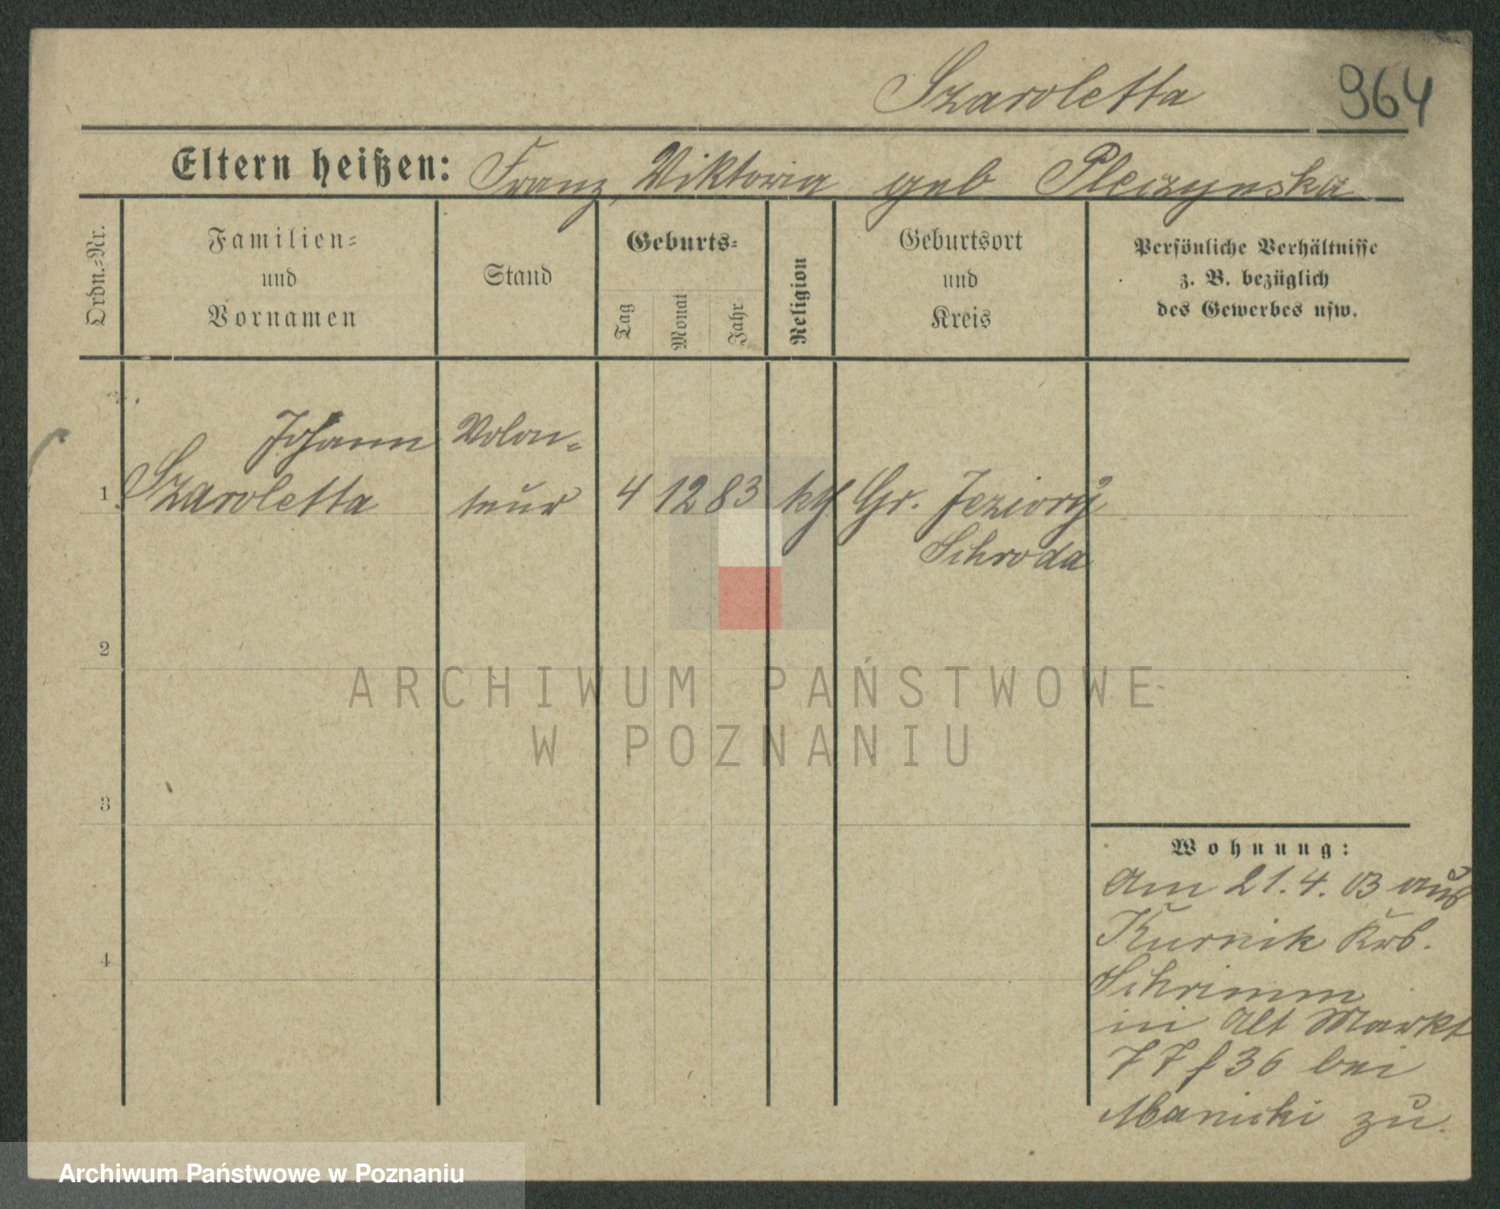 Szaroletta 964
Eltern heißen: Franz, Viktoria geb Pleczynska
Ordn.-Nr.
Familien-
und
Vornamen
Stand
Geburts-
Tag
Monat
Jahr
Religion
Geburtsort
und
Kreis
Persönliche Verhältnisse
z. B. bezüglich
des Gewerbes usw.
Johann Volon-
1 Szaroletta teur 4 12 83 kth Gr. Jeziory
Schroda
2
ARCHIWUM PAŃSTWOWE
W POZNANIU
3
Wohnung:
Am 21.4.03 aus
Kurnik
4
Schrimm
in Alt Markt
77 f 36 bei
Manicki zu.
Archiwum Państwowe w Poznaniu